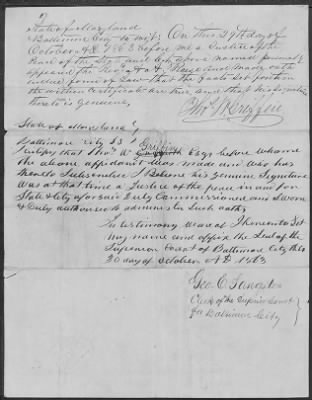 State of Maryland
Baltimore City to wit; On this 29th day of
October A.D. 1863 before me a Justice of the
Peace of the State and City above named personally
appeared the and made oath
in due form of Law that the facts set forth in
the within Certificate are true and that his signature
thereto is genuine,
Thos. W. Griffin
State of Maryland,
Baltimore City SS
Griffin
certify that Thos. W. Esqr before whom
the above affidavit was made and who has
thereto subscribed I believe his genuine Signature
was at that time a Justice of the peace in and for
State & City aforesaid duly Commissioned and Sworn
& duly authorized to administer Such oaths
In testimony whereof I hereunto Set
my name and affix the Seal of the
Superior Court of Baltimore City this
30 day of October A.D. 1863
Geo. E.
Clerk of the Superior Court
for Baltimore City